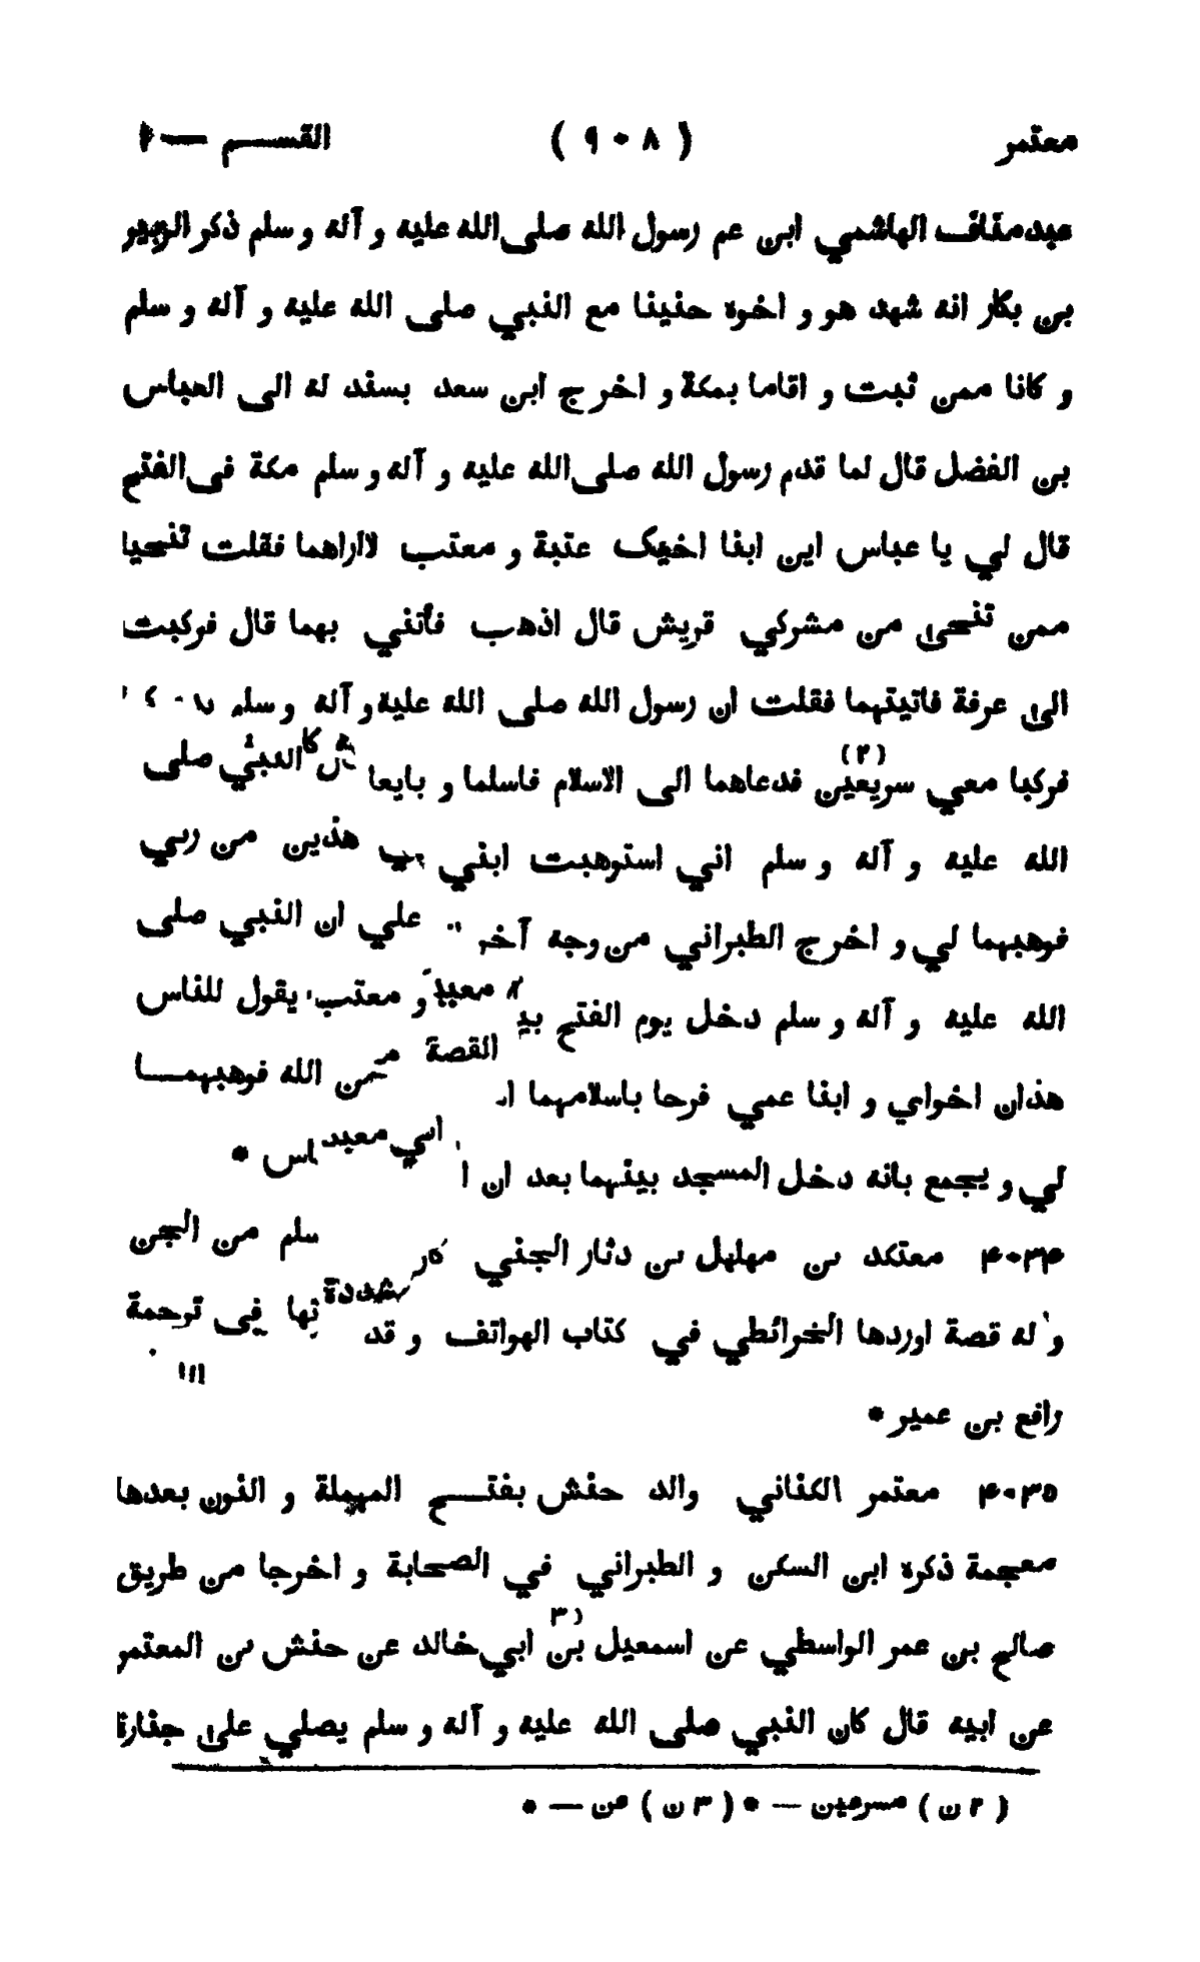 معتمر ( ٩٠٨ ) القسم — ١
عبد مناف الهاشمي ابن عم رسول الله صلى الله عليه و آله و سلم ذكر الزبير
بن بكار انه شهد هو و اخوه حنينا مع النبي صلى الله عليه و آله و سلم
و كانا ممن ثبت و اقاما بمكة و اخرج ابن سعد بسند له الى العباس
بن الفضل قال لما قدم رسول الله صلى الله عليه و آله و سلم مكة فى الفتح
قال لي يا عباس اين ابنا اخيك عتبة و معتب لا اراهما فقلت تنحيا
ممن تنحى من مشركي قريش قال اذهب فأتني بهما قال فركبت
الى عرفة فاتيتهما فقلت ان رسول الله صلى الله عليه و آله و سلم
فركبا معي سريعين (٢) فدعاهما الى الاسلام فاسلما و بايعا النبي صلى
الله عليه و آله و سلم اني استوهبت ابني هذين من ربي
فوهبهما لي و اخرج الطبراني من وجه آخر علي ان النبي صلى
الله عليه و آله و سلم دخل يوم الفتح و معتب يقول للناس
هذان اخواي و ابنا عمي فرحا باسلامهما القصة من الله فوهبهما
لي و يجمع بانه دخل المسجد بينهما بعد ان *
٤٠٣٤ معتكد بن مهلهل بن دثار الجني سلم من الجن
و له قصة اوردها الخرائطي في كتاب الهواتف و قد في ترجمة
رافع بن عمير *
٤٠٣٥ معتمر الكناني والد حنش بفتح المهملة و النون بعدها
معجمة ذكره ابن السكن و الطبراني في الصحابة و اخرجا من طريق
صالح بن عمر الواسطي عن اسمعيل بن (٣ ابي خالد عن حنش بن المعتمر
عن ابيه قال كان النبي صلى الله عليه و آله و سلم يصلي على جنازة
( ٢ ن ) مسرعين — * ( ٣ ن ) عن — *